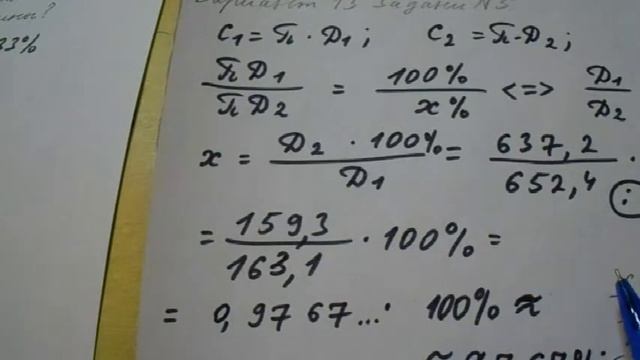 Вариант 13 задание №3
33%
C₁ = π · D₁ ; C₂ = π · D₂ ;
πD₁ / πD₂ = 100% / x% <=> D₁ / D₂
x = D₂ · 100% / D₁ = 637,2 / 652,4 ·
= 159,3 / 163,1 · 100% =
= 0,9767... · 100% ≈